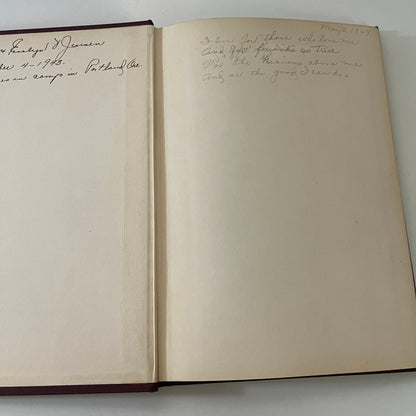 Finley J Jensen
4-1943.
is in camp in Portland Ore.
May 2 1929
I live for those who love me
And for friends so true
For the Heavens above me
And all the good I can do.